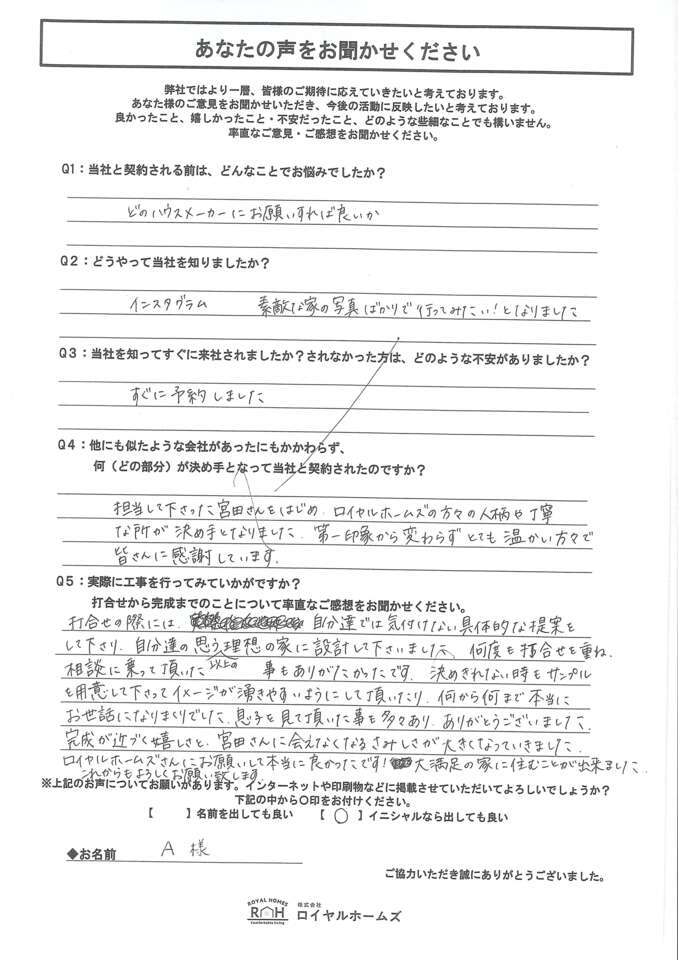 あなたの声をお聞かせください
弊社ではより一層、皆様のご期待に応えていきたいと考えております。
あなた様のご意見をお聞かせいただき、今後の活動に反映したいと考えております。
良かったこと、嬉しかったこと・不安だったこと、どのような些細なことでも構いません。
率直なご意見・ご感想をお聞かせください。
Q1：当社と契約される前は、どんなことでお悩みでしたか？
どのハウスメーカーにお願いすれば良いか
Q2：どうやって当社を知りましたか？
インスタグラム 素敵な家の写真ばかりで行ってみたい！となりました
Q3：当社を知ってすぐに来社されましたか？されなかった方は、どのような不安がありましたか？
すぐに予約しました
Q4：他にも似たような会社があったにもかかわらず、
何（どの部分）が決め手となって当社と契約されたのですか？
担当して下さった宮田さんをはじめ、ロイヤルホームズの方々の人柄や丁寧
な所が決め手となりました。第一印象から変わらずとても温かい方々で
皆さんに感謝しています。
Q5：実際に工事を行ってみていかがですか？
打合せから完成までのことについて率直なご感想をお聞かせください。
打合せの際には、自分達では気付けない具体的な提案を
して下さり、自分達の思う理想以上の家に設計して下さいました。何度も打合せを重ね、
相談に乗って頂いた事もありがたかったです。決めきれない時もサンプル
を用意して下さってイメージが湧きやすいようにして頂いたり、何から何まで本当に
お世話になりまくりでした。息子を見て頂いた事も多々あり、ありがとうございました。
完成が近づく嬉しさと、宮田さんに会えなくなるさみしさが大きくなっていきました。
ロイヤルホームズさんにお願いして本当に良かったです！大満足の家に住むことが出来ました。
これからもよろしくお願い致します。
※上記のお声についてお願いがあります。インターネットや印刷物などに掲載させていただいてよろしいでしょうか？
下記の中から○印をお付けください。
【　】名前を出しても良い　【 ○ 】イニシャルなら出しても良い
◆お名前 A 様
ご協力いただき誠にありがとうございました。
ROYAL HOMES
RH 株式会社
ロイヤルホームズ